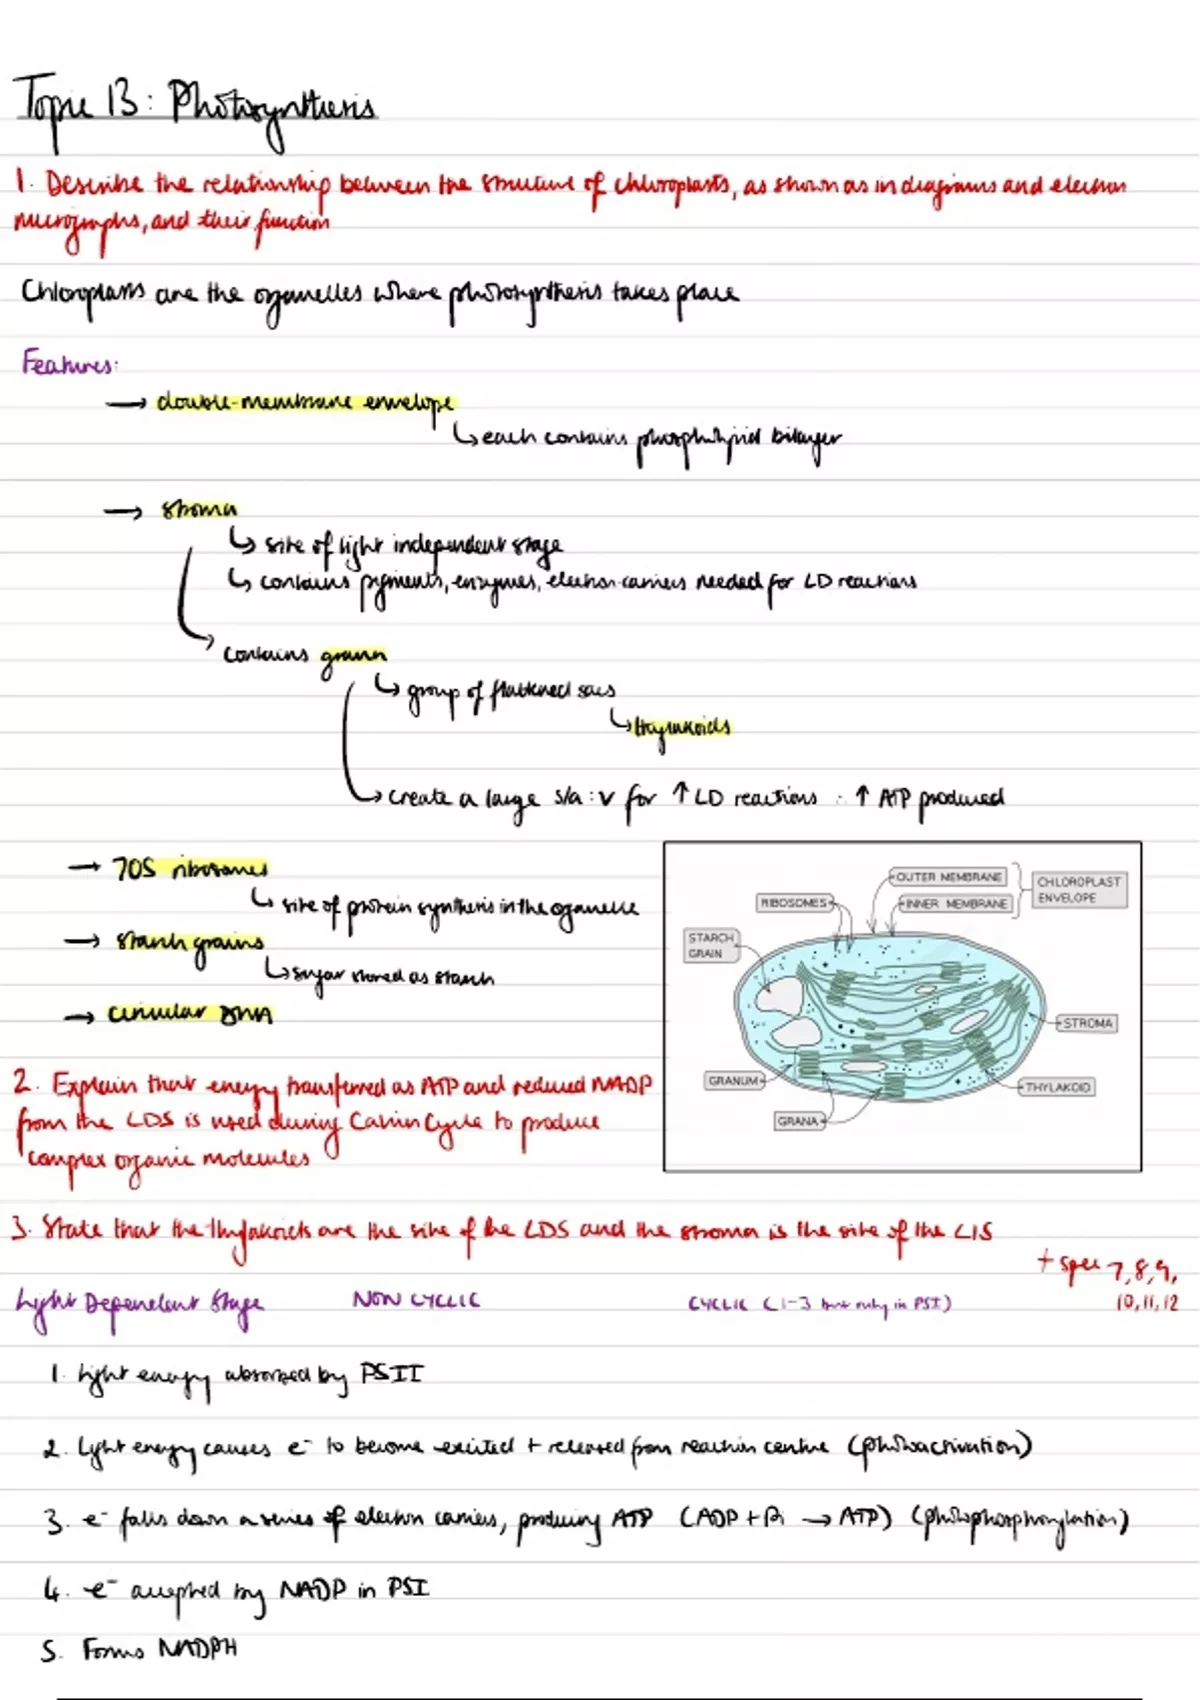 Topic 13: Photosynthesis
1. Describe the relationship between the structure of chloroplasts, as shown as in diagrams and electron
micrographs, and their function
Chloroplasts are the organelles where photosynthesis takes place
Features:
→ double-membrane envelope
↳ each contains phospholipid bilayer
→ stroma
↳ site of light independent stage
↳ contains pigments, enzymes, electron carriers needed for LD reactions
contains grana
↳ group of flattened sacs
↳ thylakoids
create a large s/a:v for ↑ LD reactions ∴ ↑ ATP produced
→ 70S ribosomes
↳ site of protein synthesis in the organelle
→ starch grains
↳ sugar stored as starch
→ circular DNA
OUTER MEMBRANE
INNER MEMBRANE
CHLOROPLAST
ENVELOPE
RIBOSOMES
STARCH
GRAIN
STROMA
GRANUM
THYLAKOID
GRANA
2. Explain that energy transferred as ATP and reduced NADP
from the LDS is used during Calvin Cycle to produce
complex organic molecules
3. State that the thylakoids are the site of the LDS and the stroma is the site of the LIS
+ spec 7, 8, 9,
10, 11, 12
Light Dependent Stage NON CYCLIC CYCLIC (1-3 but only in PSI)
1. Light energy absorbed by PSII
2. Light energy causes e⁻ to become excited + released from reaction centre (photoactivation)
3. e⁻ falls down a series of electron carriers, producing ATP (ADP + Pi → ATP) (photophosphorylation)
4. e⁻ accepted by NADP in PSI
5. Forms NADPH